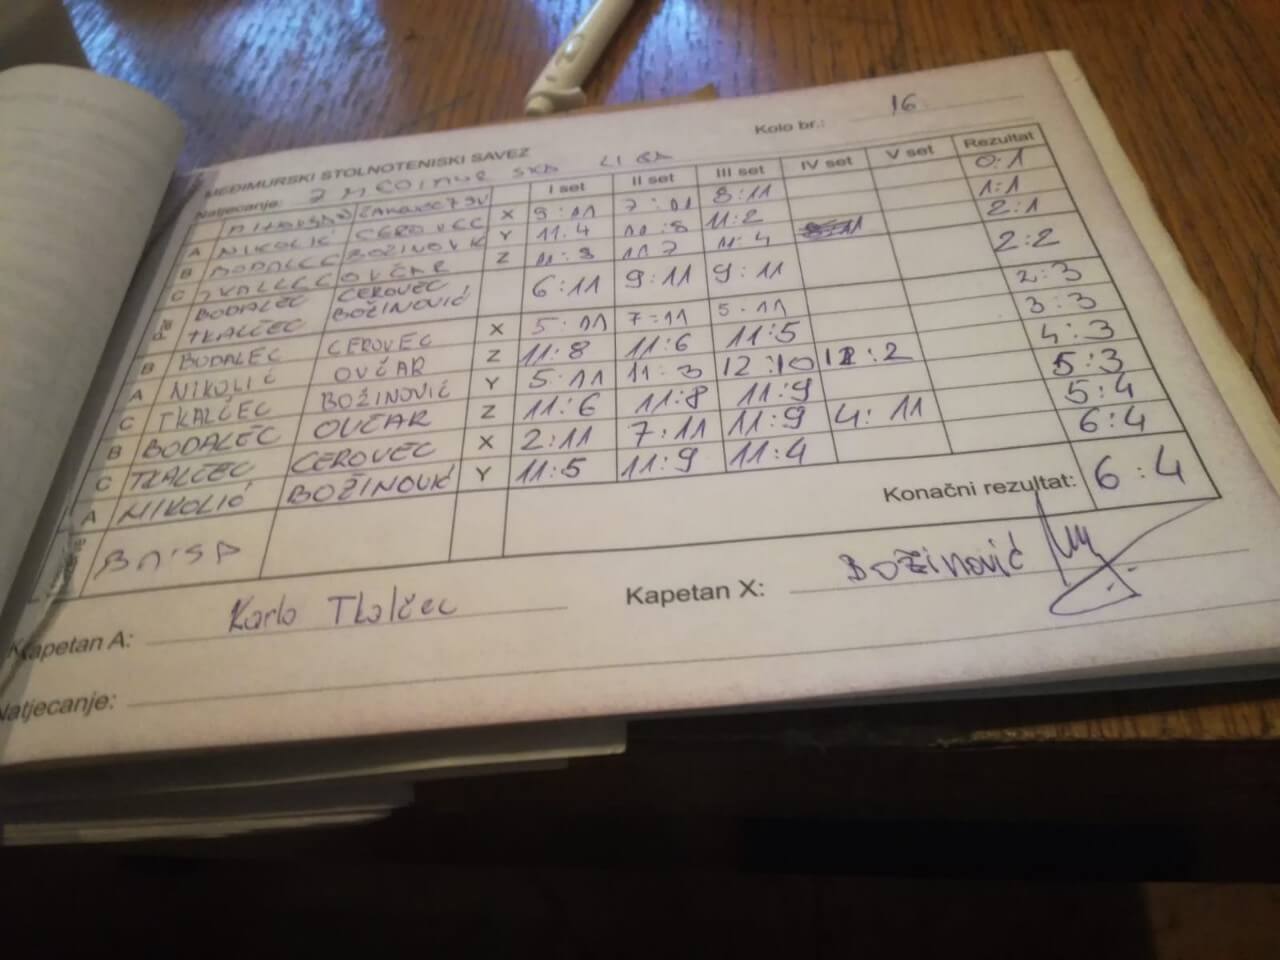 MEĐIMURSKI STOLNOTENISKI SAVEZ
Kolo br.: 16
Natjecanje:
I set II set III set IV set V set Rezultat
A NIKOLIĆ CEROVEC X 9:11 7:11 8:11 0:1
B BODALEC BOŽINOVIĆ Y 11:4 11:8 11:2 1:1
C OVČAR Z 11:3 11:7 11:4 2:1
BODALEC CEROVEC 6:11 9:11 9:11 2:2
TKALČEC BOŽINOVIĆ
B BODALEC CEROVEC X 5:11 7:11 5:11 2:3
A NIKOLIĆ OVČAR Z 11:8 11:6 11:5 3:3
C TKALČEC BOŽINOVIĆ Y 5:11 11:3 12:10 4:3
B BODALEC OVČAR Z 11:6 11:8 11:9 5:3
C TKALČEC CEROVEC X 2:11 7:11 11:9 4:11 5:4
A NIKOLIĆ BOŽINOVIĆ Y 11:5 11:9 11:4 6:4
Konačni rezultat: 6:4
Kapetan A: Karlo Tkalčec
Kapetan X: Božinović
Natjecanje: